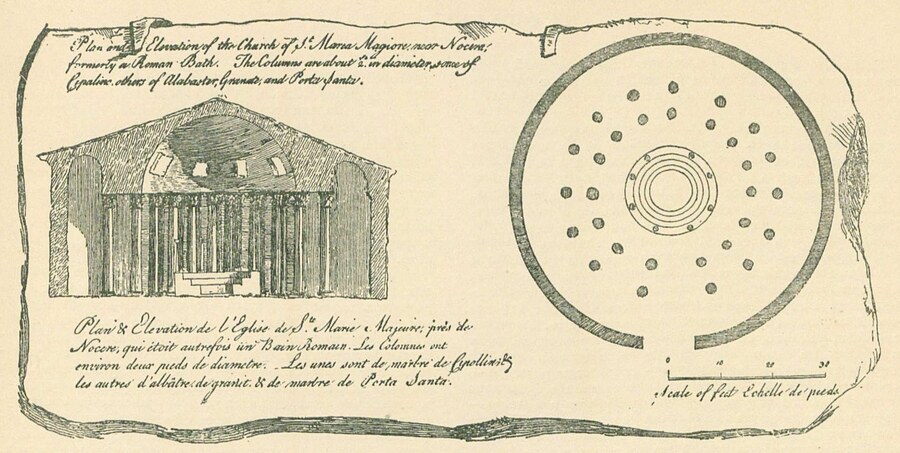 Plan and Elevation of the Church of St. Maria Magiore, near Nocera,
formerly a Roman Bath. The Columns are about 2 in diameter, some of
Cipalin, others of Alabaster, Granate, and Porta Santa.
Plan & Elevation de l'Eglise de Ste. Marie Majeure, près de
Nocere, qui étoit autrefois un Bain Romain. Les Colomnes ont
environ deux pieds de diametre. Les unes sont de marbre de Cipollin; &
les autres d'albâtre, de granit, & de marbre de Porta Santa.
0 10 20 30
Scale of feet Echelle de pieds